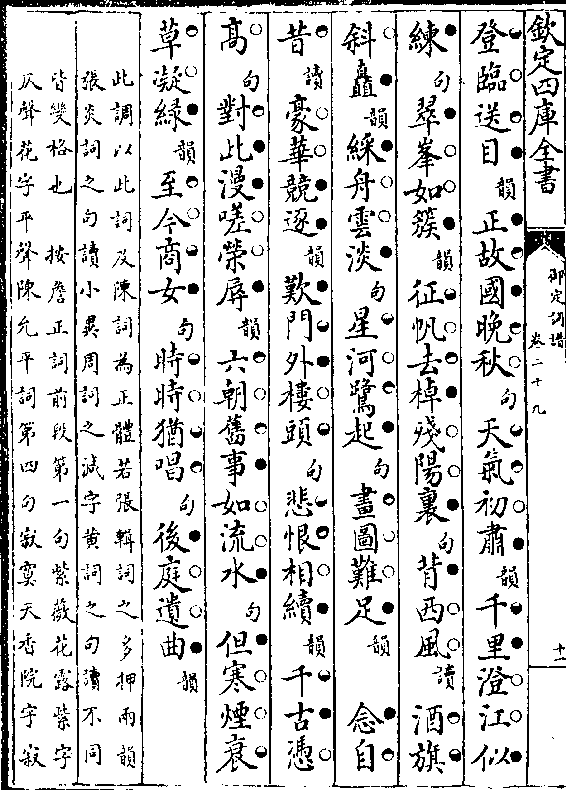 欽定四庫全書
御定詞譜
卷二十九
十一
登臨送目韻正故國晚秋句天氣初肅韻千里澄江似
練句翠峯如簇韻征帆去棹殘陽裏句背西風讀酒旗
斜矗韻綵舟雲淡句星河鷺起句畫圖難足韻　念自
昔讀豪華競逐韻歎門外樓頭句悲恨相續韻千古憑
高句對此漫嗟榮辱韻六朝舊事如流水句但寒煙衰
草凝緑韻至今商女句時時猶唱句後庭遺曲韻
此調以此詞及陳詞為正體若張輯詞之多押兩韻
張炎詞之句讀小異周詞之減字黄詞之句讀不同
皆變格也　按詹正詞前段第一句紫薇花露紫字
仄聲花字平聲陳允平詞第四句寂寞天香院宇寂